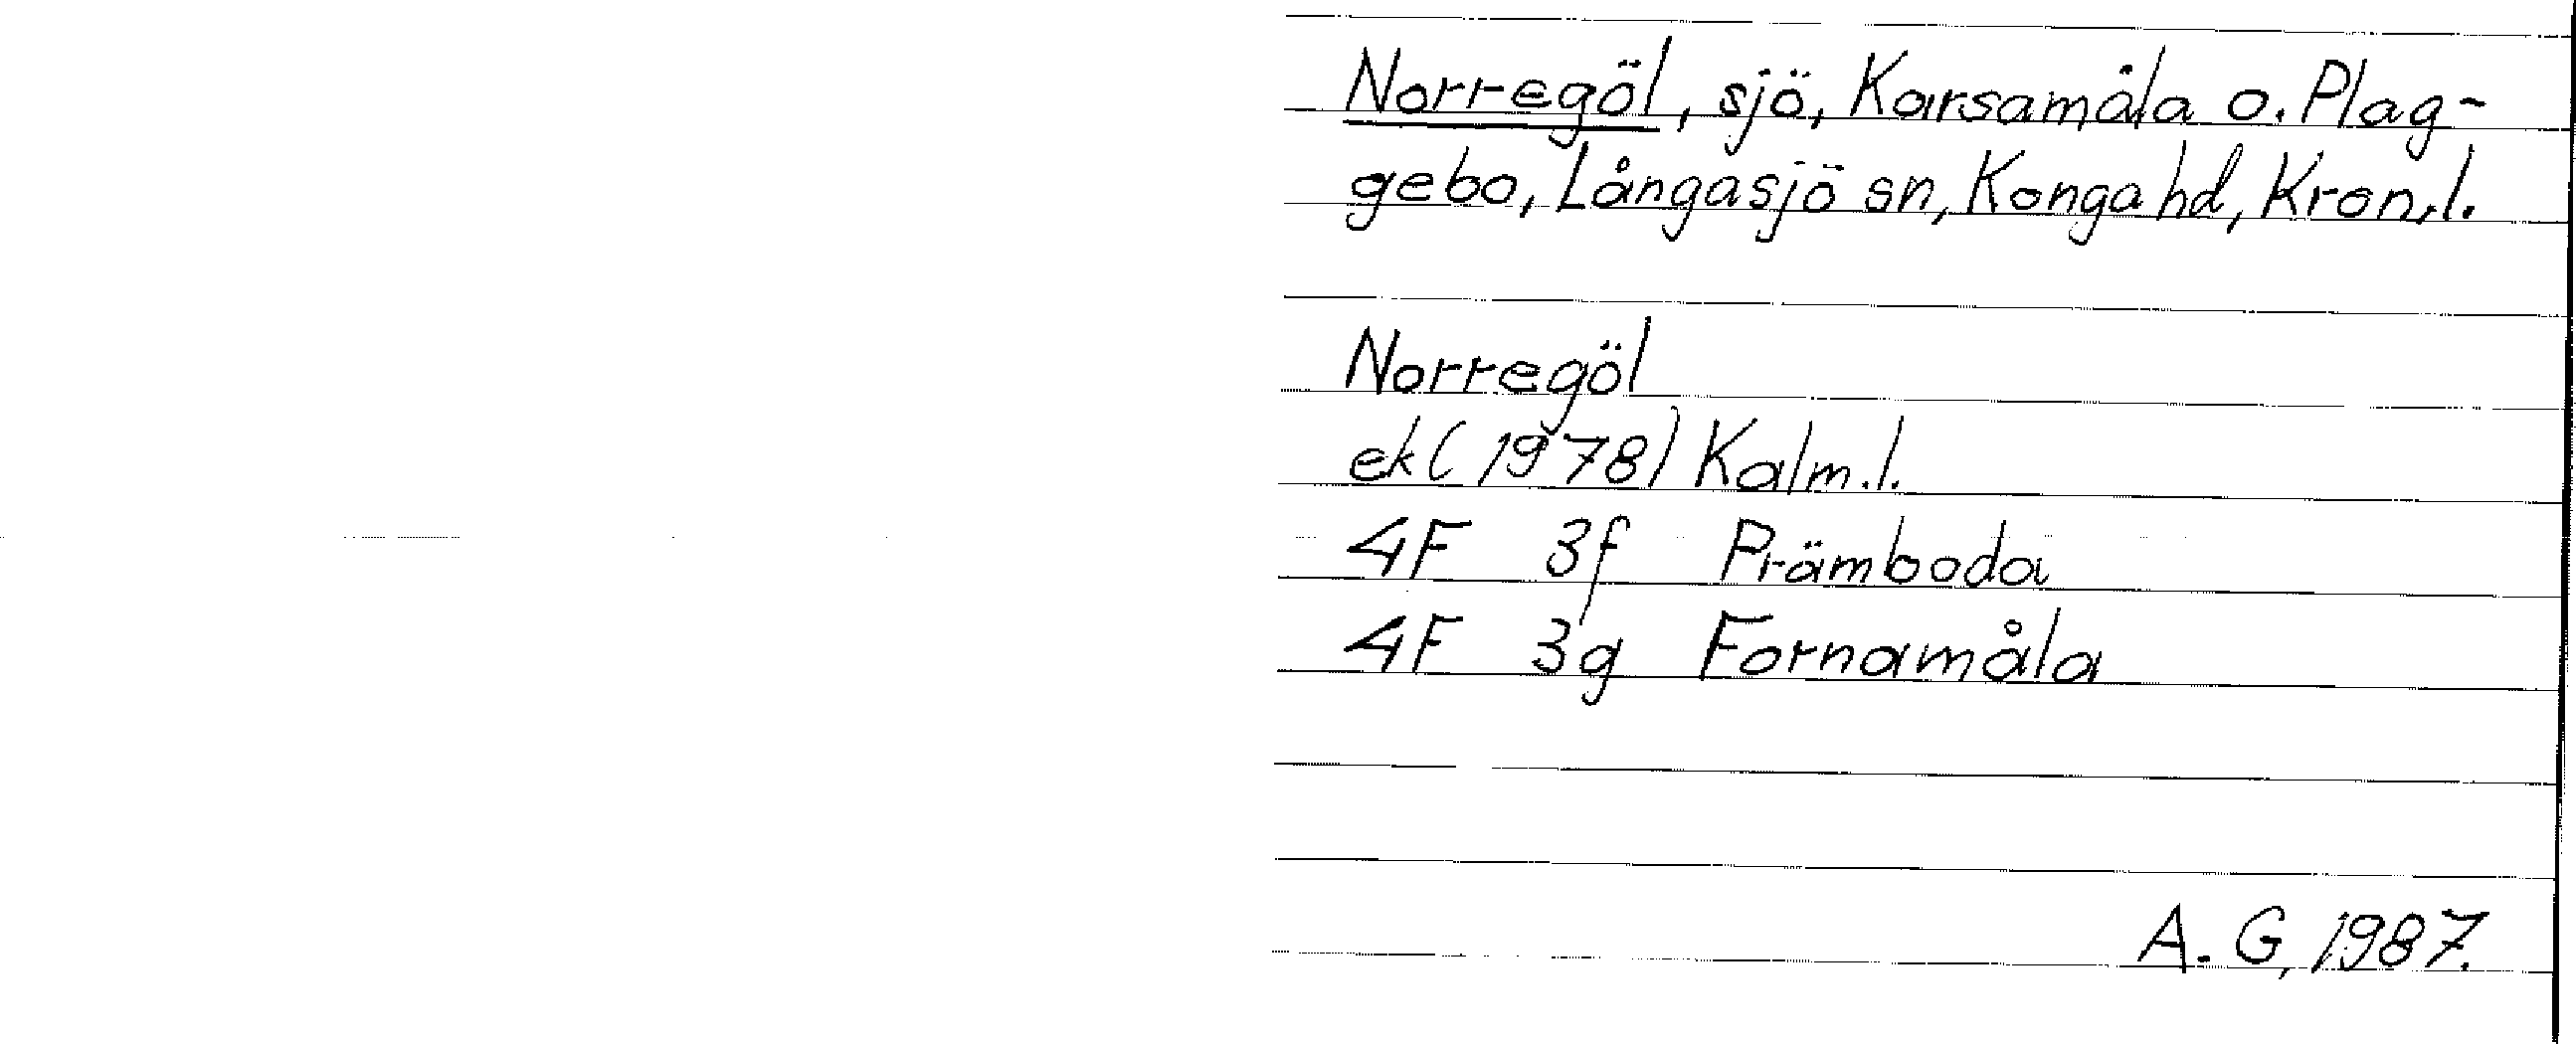 Norregöl, sjö, Karsamåla o. Plag-
gebo, Långasjö sn, Konga hd, Kron.l.
Norregöl
ek (1978) Kalm.l.
4F 3f Prämboda
4F 3g Fornamåla
A. G, 1987.